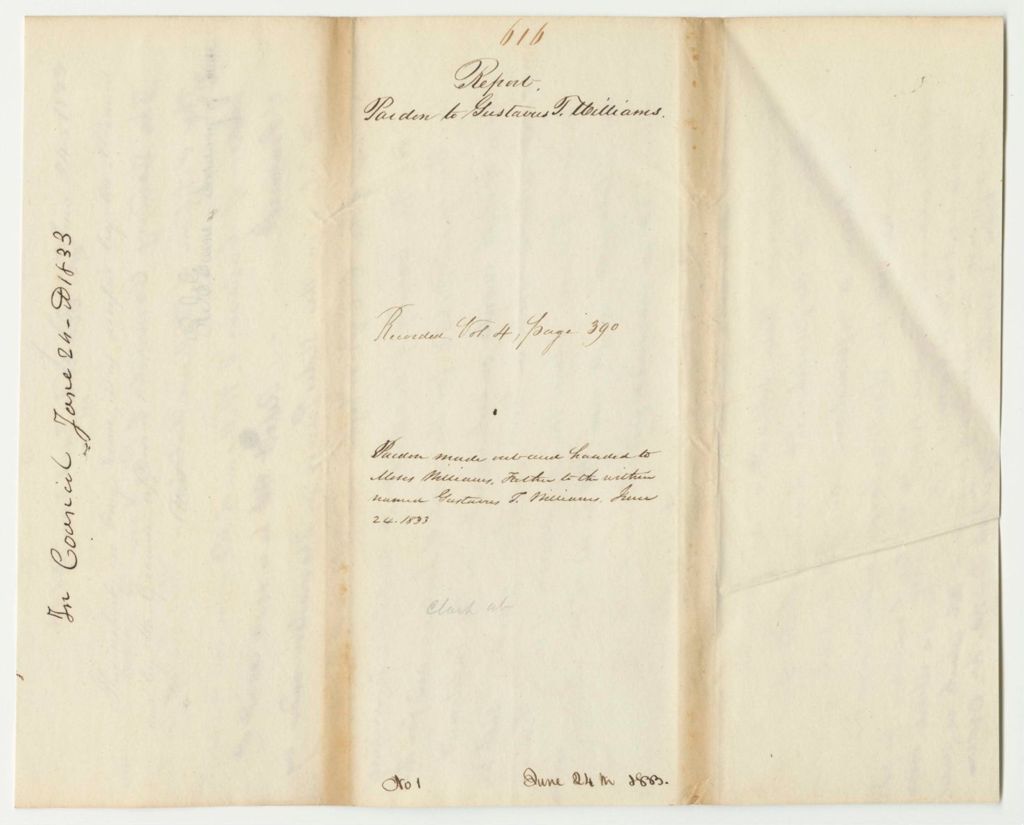 616
Report.
Pardon to Gustavus T. Williams.
Recorded Vol. 4, page 390
Pardon made out and handed to
Moses Williams, Father to the within
named Gustavus T. Williams. June
24. 1833
No 1
June 24th 1833.
In Council June 24 1833